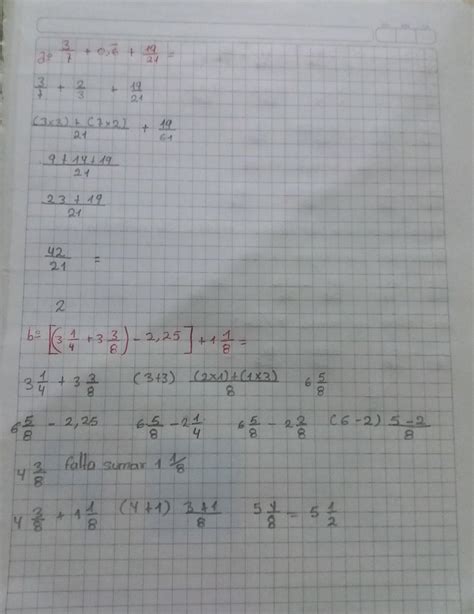 a= 3/7 + 0,6̂ + 19/21 =
3/7 + 2/3 + 19/21
(3x3) + (7x2)/21 + 19/21
9+14+19/21
23+19/21
42/21 =
2
b= [(3 1/4 + 3 3/8) - 2,25] + 1 1/8 =
3 1/4 + 3 3/8 (3+3) (2x1)+(1x3)/8 6 5/8
6 5/8 - 2,25 6 5/8 - 2 1/4 6 5/8 - 2 2/8 (6-2) 5-2/8
4 3/8 falta sumar 1 1/8
4 3/8 + 1 1/8 (4+1) 3+1/8 5 4/8 = 5 1/2